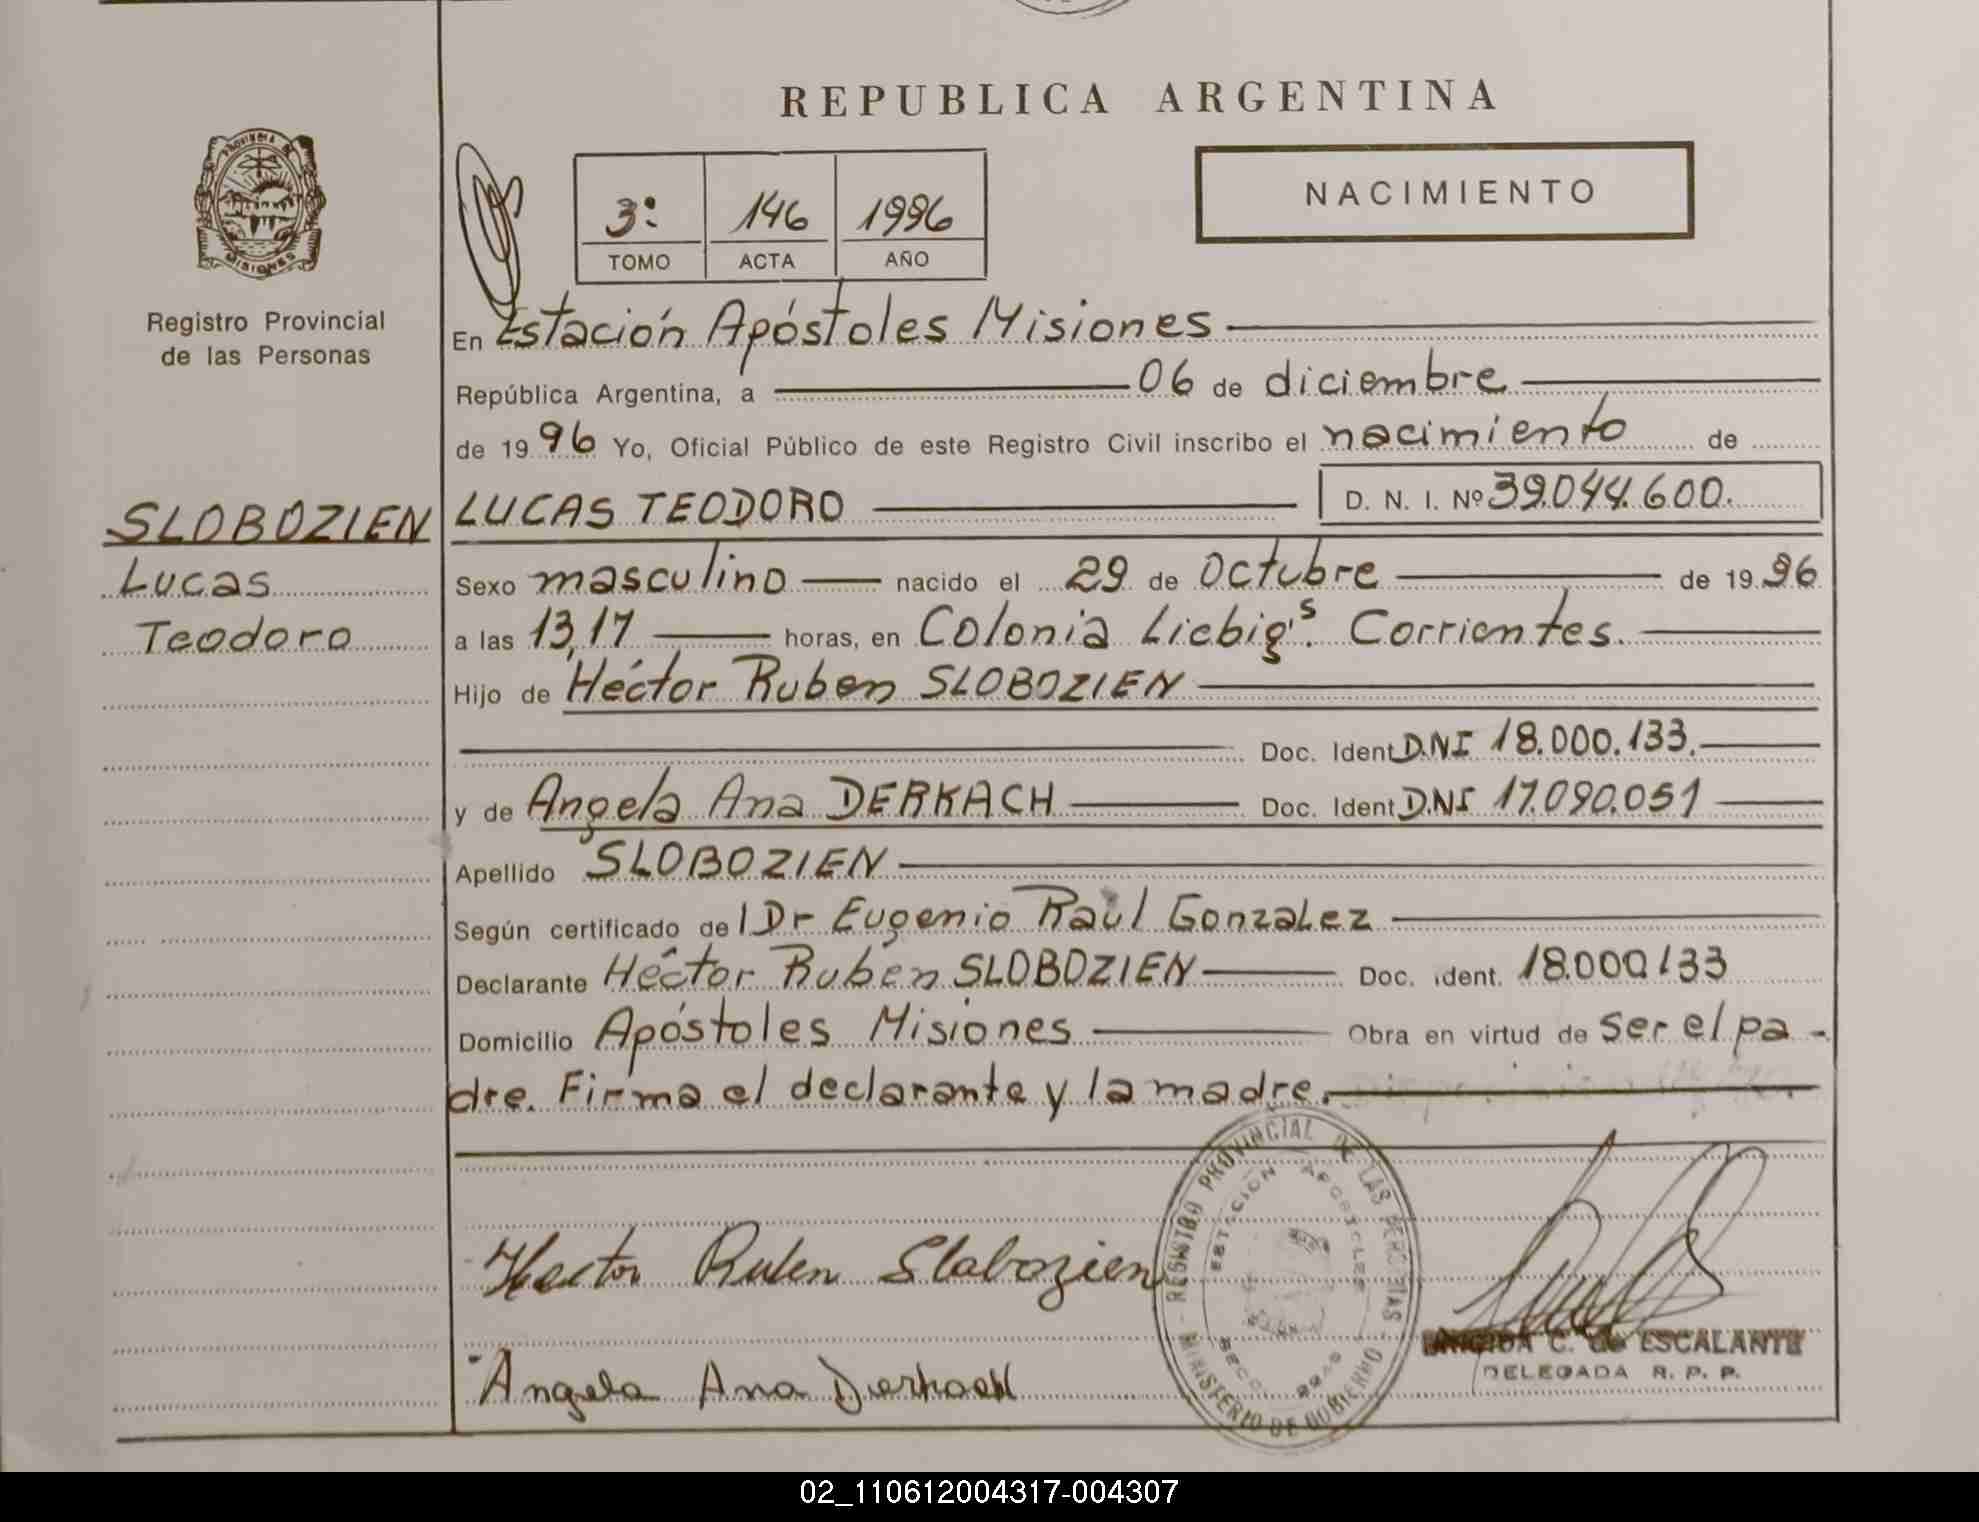 REPUBLICA ARGENTINA
PROVINCIA DE
MISIONES
Registro Provincial
de las Personas
3º 146 1996
TOMO ACTA AÑO
NACIMIENTO
En Estación Apóstoles Misiones
República Argentina, a 06 de diciembre
de 1996 Yo, Oficial Público de este Registro Civil inscribo el nacimiento de
SLOBOZIEN
Lucas
Teodoro
LUCAS TEODORO D. N. I. Nº 39.044.600.
Sexo masculino nacido el 29 de Octubre de 1996
a las 13,17 horas, en Colonia Liebig's. Corrientes.
Hijo de Héctor Ruben SLOBOZIEN
Doc. Ident DNI 18.000.133.
y de Angela Ana DERKACH Doc. Ident DNI 17.090.051
Apellido SLOBOZIEN
Según certificado del Dr Eugenio Raúl Gonzalez
Declarante Héctor Ruben SLOBOZIEN Doc. ident. 18.000133
Domicilio Apóstoles Misiones Obra en virtud de ser el pa-
dre. Firma el declarante y la madre.
Hector Ruben Slobozien
Angela Ana Derkach
REGISTRO PROVINCIAL DE LAS PERSONAS
MINISTERIO DE GOBIERNO
ESTACIÓN APOSTOLES
C. de ESCALANTE
DELEGADA R. P. P.
02_110612004317-004307